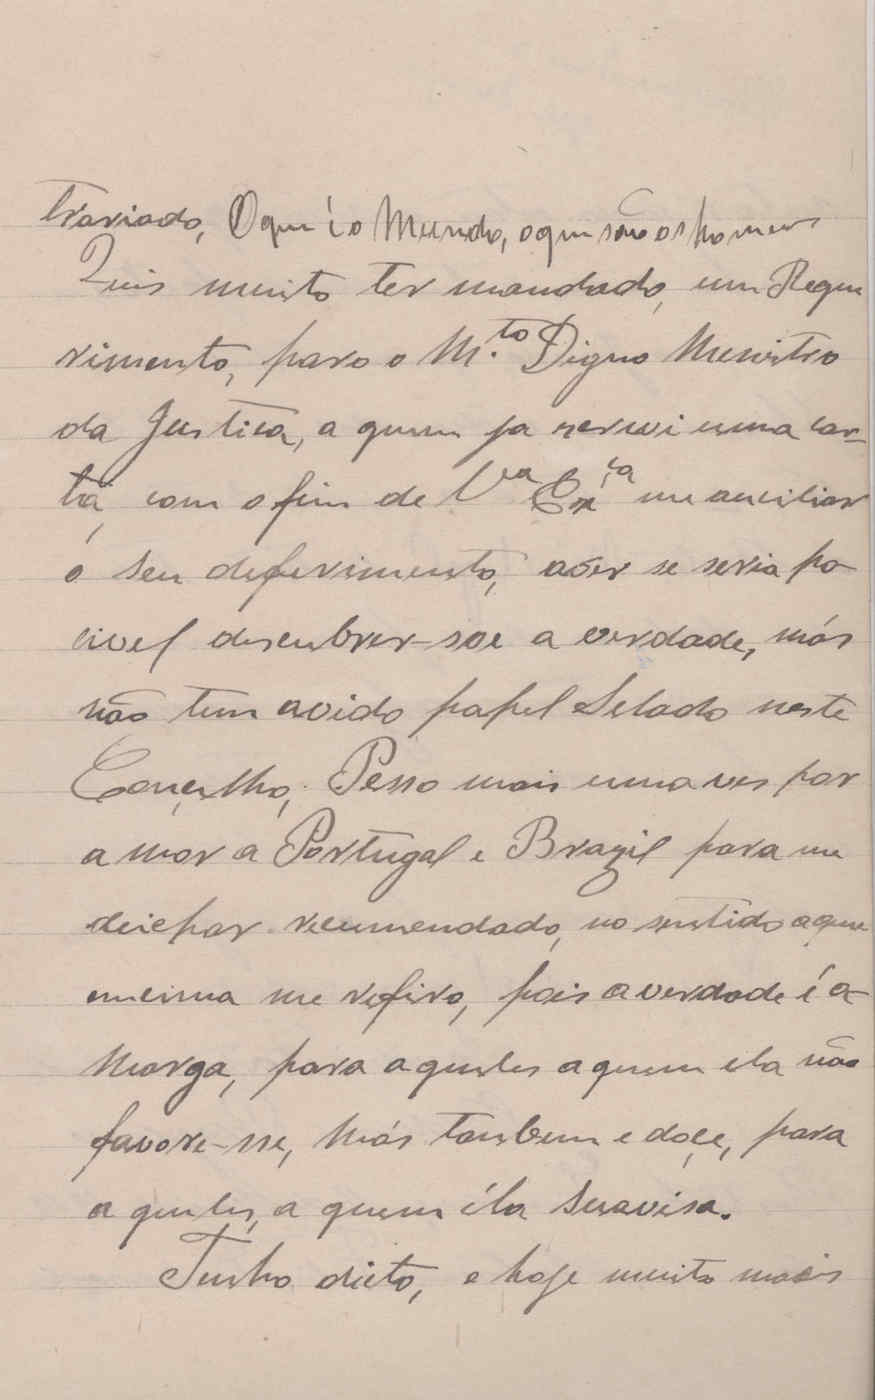 trariado, O que é o Mundo, o que são os homens
Quis muito ter mandado, um Reque
rimento, para o M.to Digno Menistro
da Justica, a quem ja screvi uma car-
ta, com o fim de V.a Ex.cia me auciliar
o seu deferimento, aver se seria po-
civel descubrer-sse a verdade, más
não tem avido papel Selado neste
Conçelho, Pesso mais uma ves por
a mor a Portugal e Brazil para me
deichar recumendado, no sentido a que
emcima me refiro, pois a verdade é a-
Marga, para aqueles a quem ela não
favore-sse, Más tambem e doçe, para
a queles, a quem éla Suavisa.
Tenho dicto, e hoje muito mais